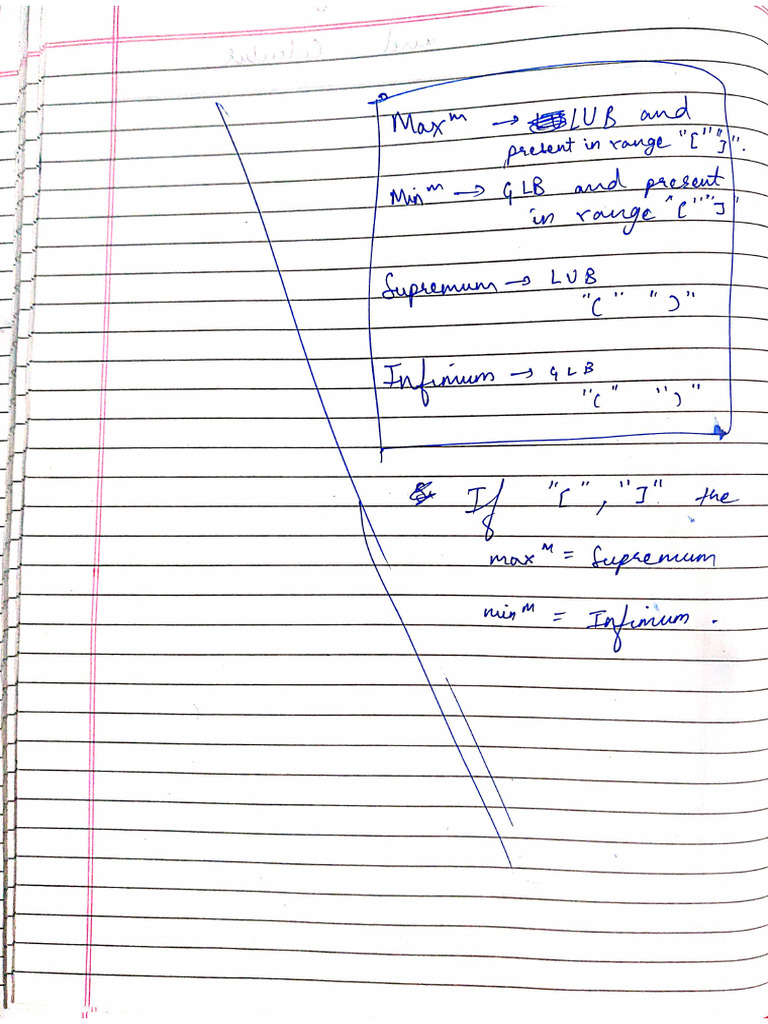 Max^m → LUB and
present in range "[" "]".
Min^m → GLB and present
in range "[" "]"
Supremum → LUB
"(" ")"
Infimium → GLB
"(" ")"
If "[", "]" the
max^m = Supremum
min^m = Infimium.